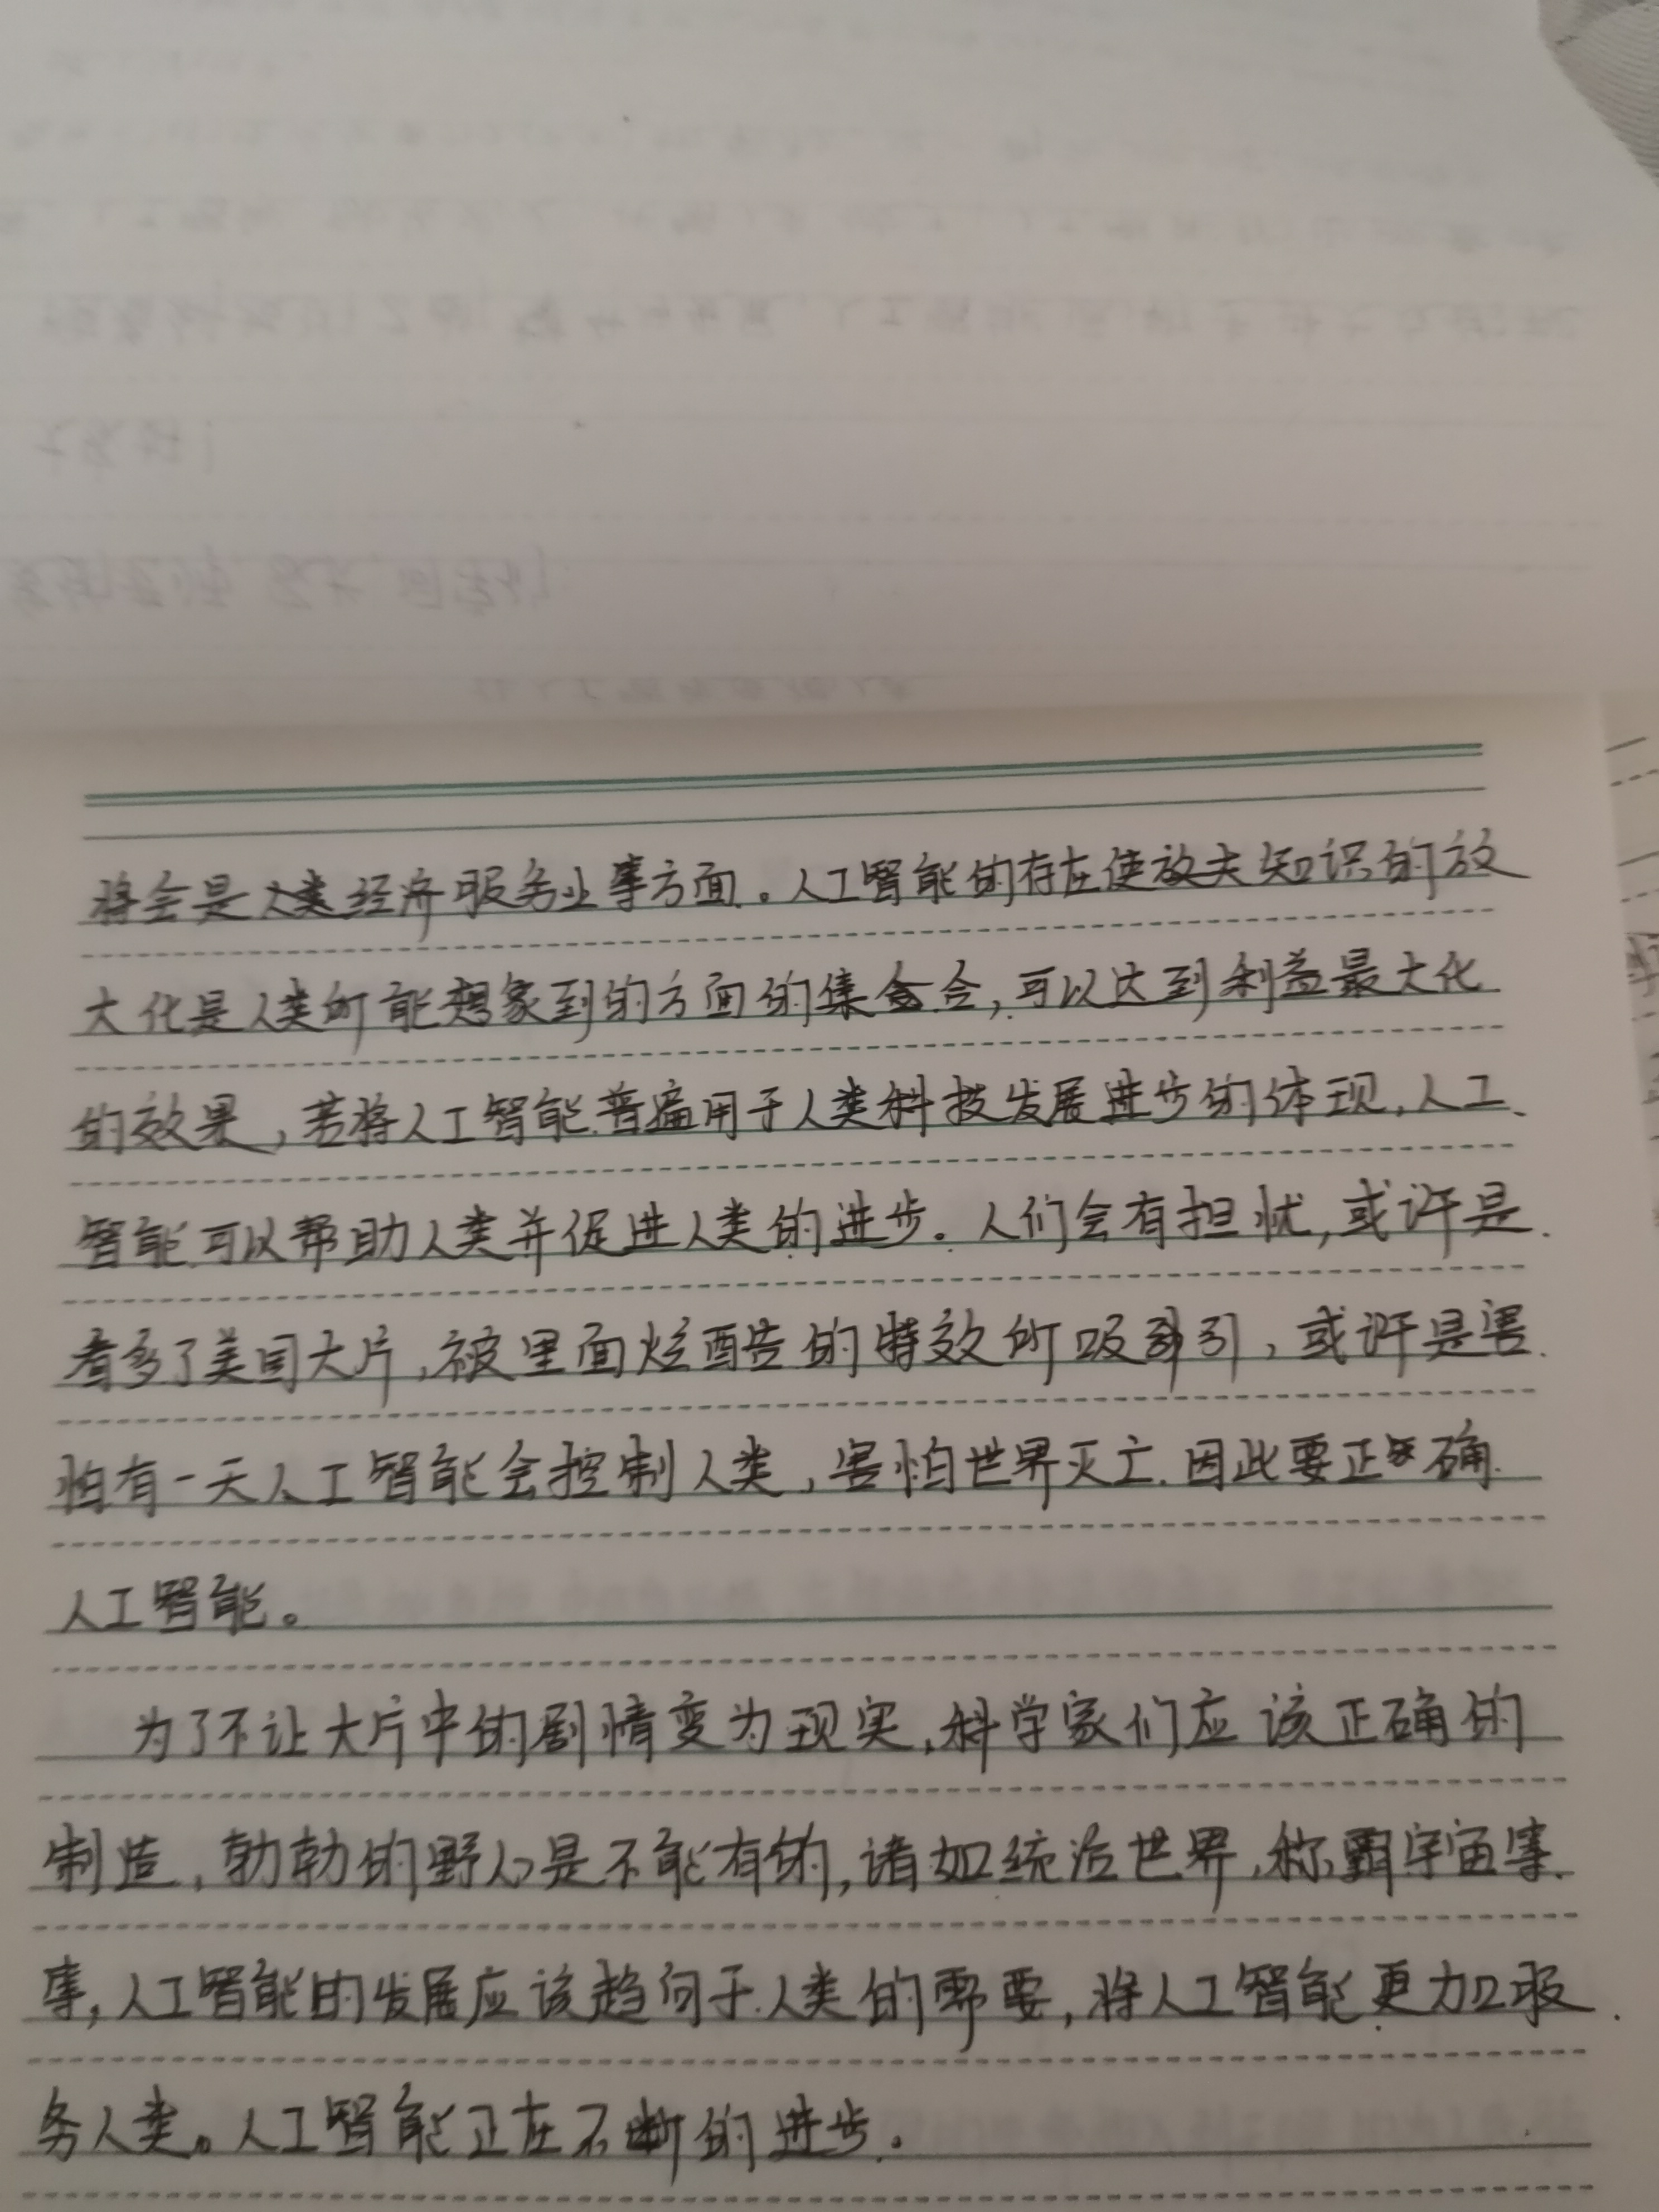 将会是人类经济服务业事方面。人工智能的存在使放大知识的放
大化是人类所能想象到的方面的集合,可以达到利益最大化
的效果,若将人工智能普遍用于人类科技发展进步的体现,人工
智能可以帮助人类并促进人类的进步。人们会有担忧,或许是
看多了美国大片,被里面炫酷的特效所吸引,或许是害
怕有一天人工智能会控制人类,害怕世界灭亡.因此要正确
人工智能。
为了不让大片中的剧情变为现实,科学家们应该正确的
制造,勃勃的野心是不能有的,诸如统治世界,称霸宇宙等
事,人工智能的发展应该趋向于人类的需要,将人工智能更加服
务人类。人工智能正在不断的进步.